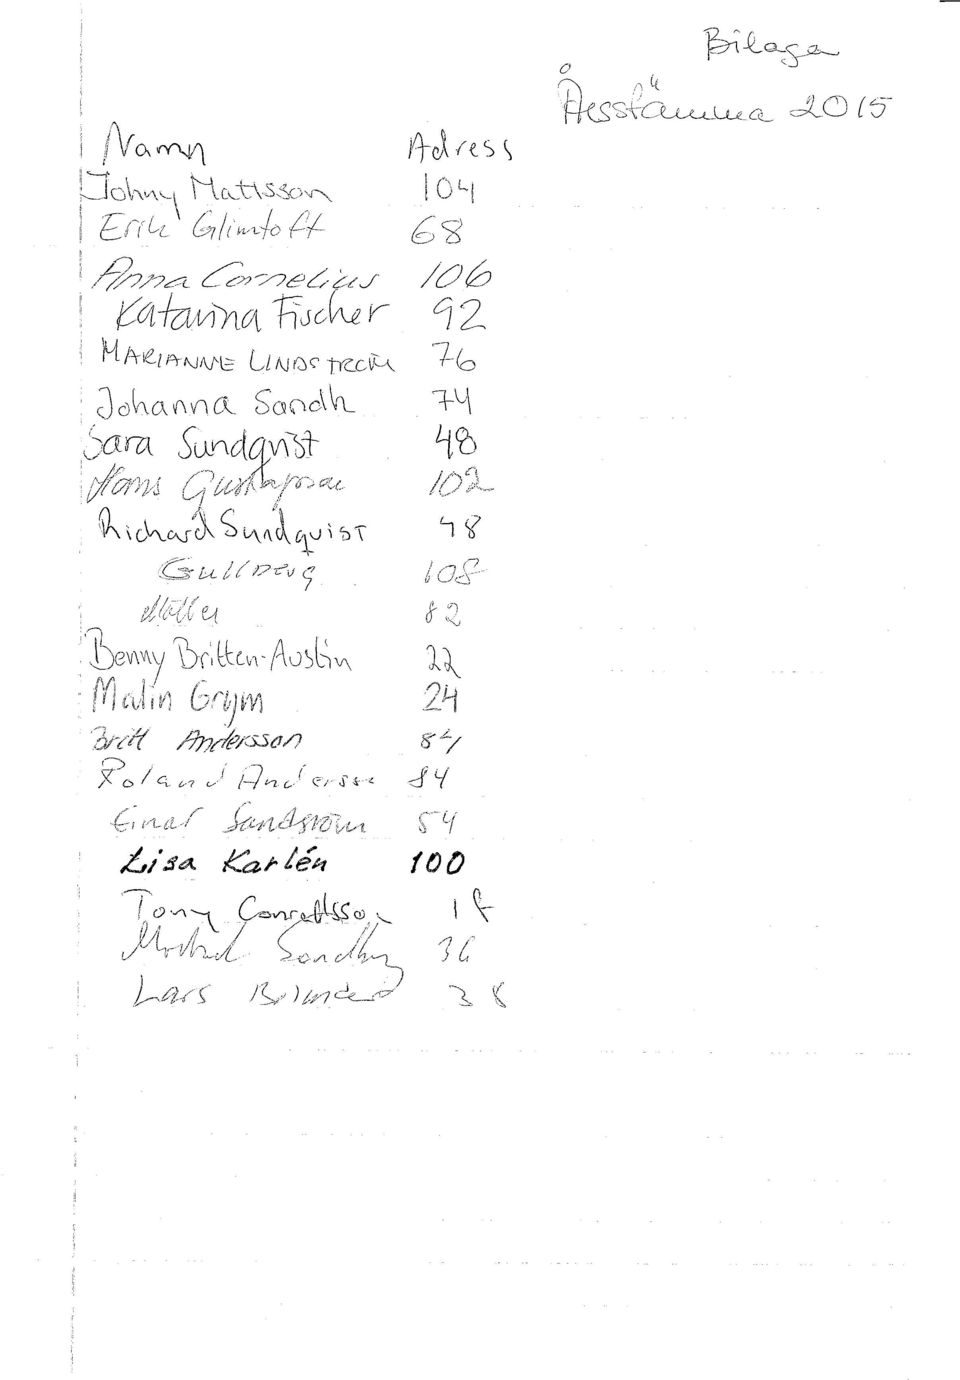 Bilaga
Årsstämma 2015
Namn Adress
Johny Mattsson 104
Erik Glimtoft 68
Anna Cornelius 106
Katarina Fischer 92
MARIANNE LINDSTRÖM 76
Johanna Sandh 74
Sara Sundqvist 48
Hans Gustafsson 102
Richard Sundquist 48
Gullberg 108
Möller 82
Benny Britten-Austin 22
Malin Grym 24
Britt Andersson 84
Roland Andersson 84
Einar Sandström 54
Lisa Karlén 100
Tony Conradsson
36
Lars 38